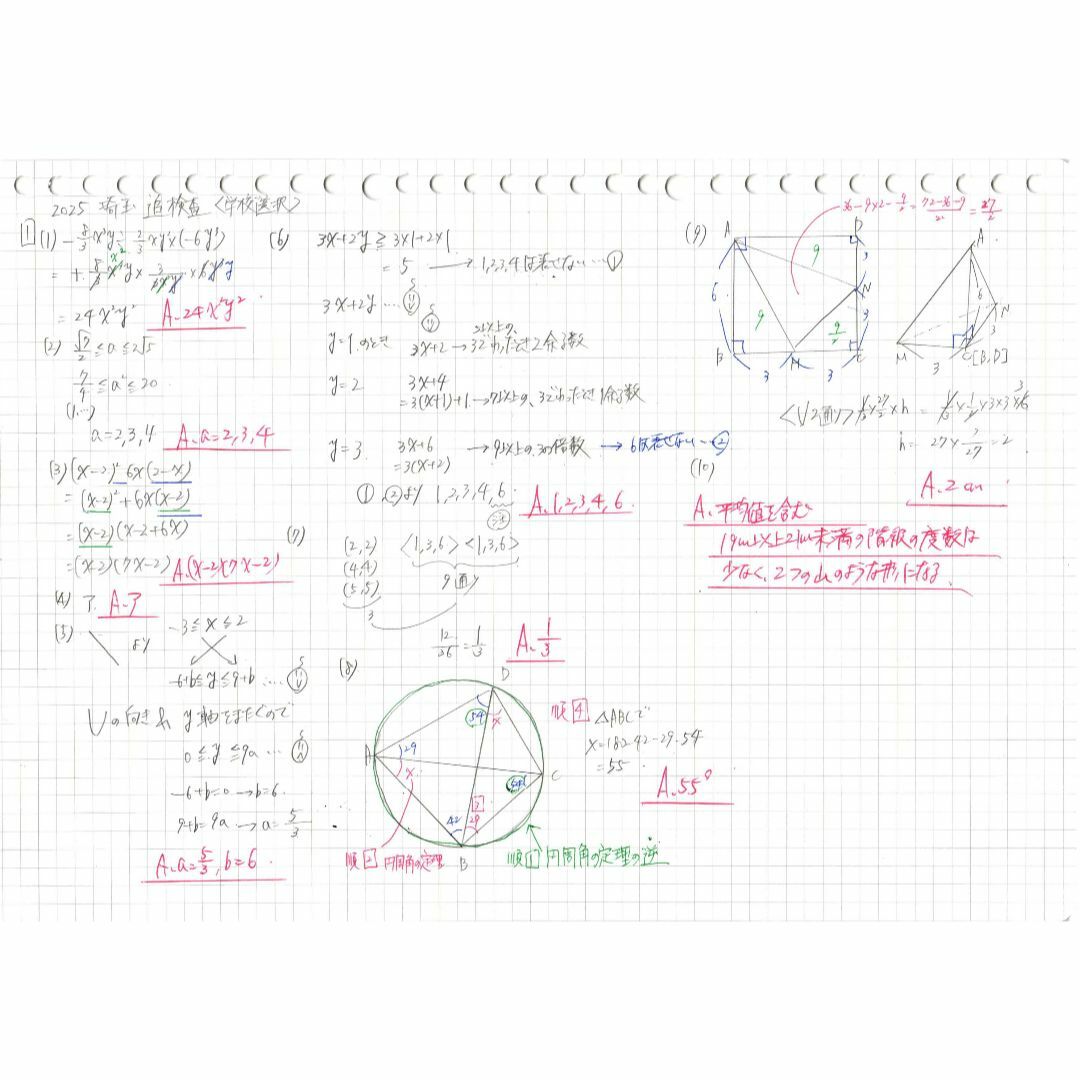 2025 埼玉 追検査〈学校選択〉
1
(1) -8/3x³y ÷ 2/3xy² × (-6y³)
= 24x²y²
A. 24x²y²
(2) √7/2 ≦ a ≦ 2√5
7/4 ≦ a² ≦ 20
(1.…)
a=2,3,4
A. a=2,3,4
(3) (x-2)² - 6x(2-x)
= (x-2)² + 6x(x-2)
= (x-2)(x-2+6x)
= (x-2)(7x-2)
A. (x-2)(7x-2)
(4) ア
A. ア
(5)
より
-3≦x≦2
-6+b≦y≦9+b …
の向きと y軸をまたぐので
0≦y≦9a …
-6+b=0→b=6.
9+b=9a→a=5/3
A. a=5/3, b=6
(6) 3x+2y ≧ 3×1+2×1
= 5 → 1,2,3,4は表せない…①
3x+2y …
y=1.のとき 3x+2→3でわったとき2余る数
y=2 3x+4
=3(x+1)+1.→7以上の、3でわったとき1余る数
y=3. 3x+6 →9以上の3の倍数 →6は表せない…②
=3(x+2)
①,②より 1,2,3,4,6.
A. 1,2,3,4,6.
(7)
(2,2) 〈1,3,6〉〈1,3,6〉
(4,4)
(5,5) 9通り
3
12/36=1/3
A. 1/3
(8)
D
54
x
A
29
x
C
54
2
42
29
B
順2 円周角の定理
順1 円周角の定理の逆
順4 △ABCで
x=180-42-29-54
=55
A. 55°
(9)
36-9×2-9/2=(72-36-9)/2=27/2
A
D
9
3
6
N
9
3
9/2
B
M
C
3
3
A
6
N
3
M
3
C[B,D]
〈V2通り〉 1/3×27/2×h = 1/3×1/2×3×3×6
h=27×2/27=2
A. 2cm
(10)
A. 平均値を含む
19m以上21m未満の階級の度数は
少なく、2つの山のような形になる.